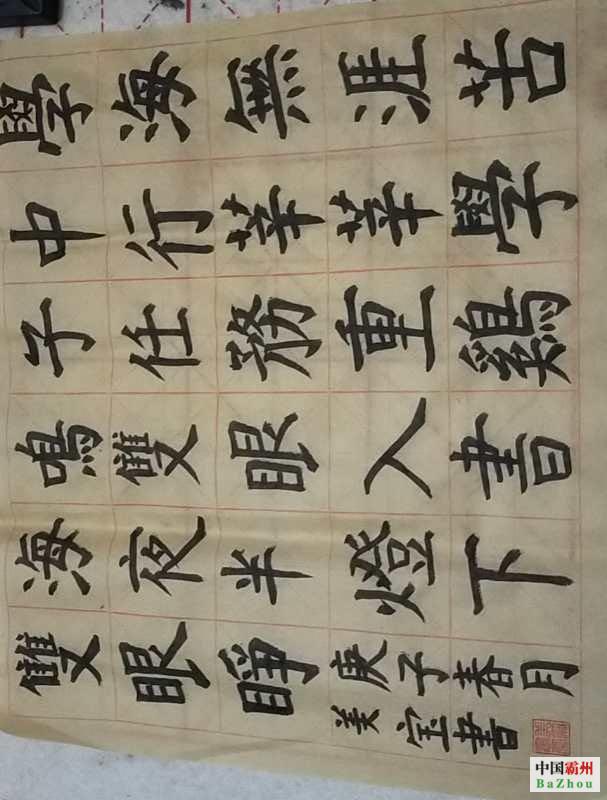 學海無涯苦
中行莘莘學
子任務重鷄
鳴雙眼入書
海夜半燈下
雙眼睜
庚子春月
美宝書
中国霸州
BaZhou